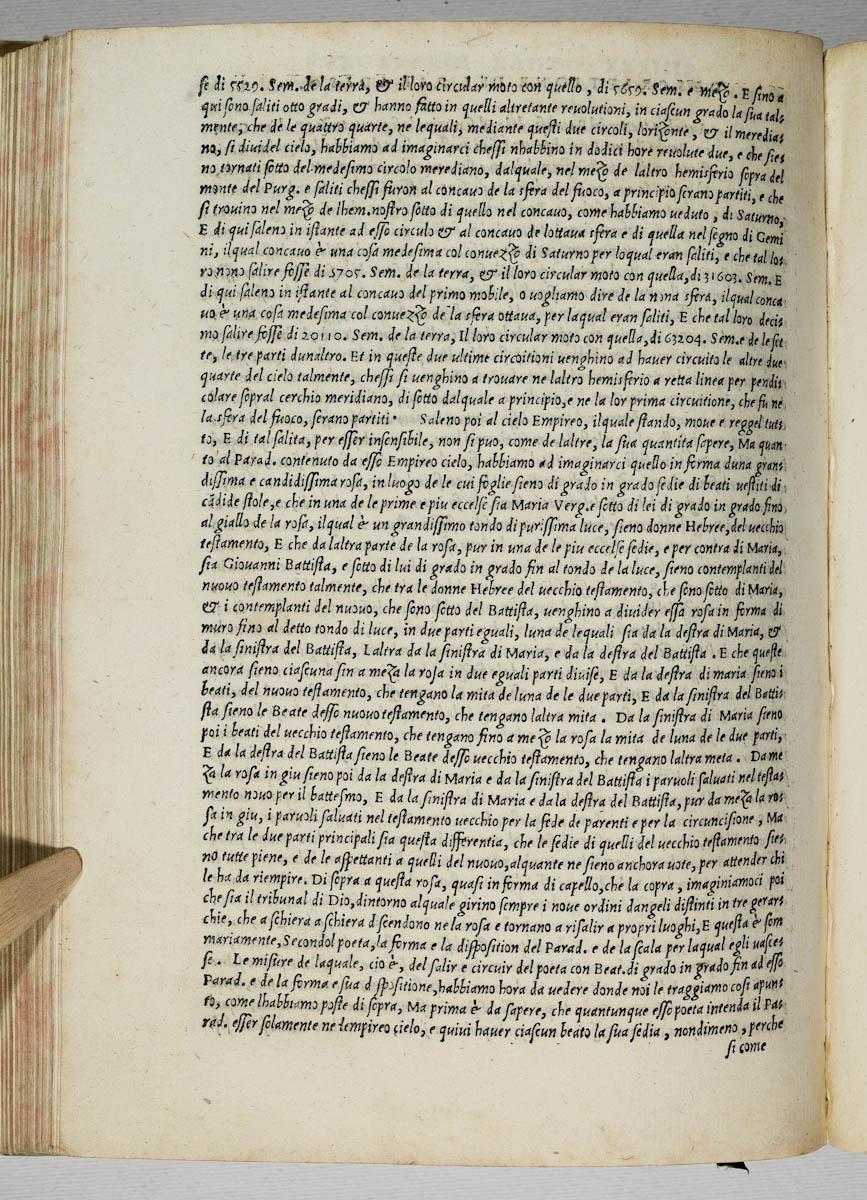 se di 5529. Sem. de la terra, & il loro circular moto con quello, di 5659. Sem. e mezo. E sino a
qui sono saliti otto gradi, & hanno fatto in quelli altretante revolutioni, in ciascun grado la sua tal-
mente, che de le quattro quarte, ne lequali, mediante questi due circoli, lorizonte, & il meredia-
no, si dividel cielo, habbiamo ad imaginarci chessi nhabbino in dodici hore revolute due, e che sie-
no tornati sotto del medesimo circolo merediano, dalquale, nel mezo de laltro hemisferio sopra del
monte del Purg. e saliti chessi furon al concauo de la sfera del fuoco, a principio serano partiti, e che
si trovino nel mezo de lhem. nostro sotto di quello nel concauo, come habbiamo veduto, di Saturno,
E di qui saleno in istante ad esso circulo & al concauo de lottaua sfera e di quella nel segno di Gemi
ni, ilqual concauo è una cosa medesima col conuezzo di Saturno per loqual eran saliti, e che tal lo-
ro nono salire fosse di 5705. Sem. de la terra, & il loro circular moto con quella, di 31603. Sem. E
di qui saleno in istante al concauo del primo mobile, o uogliamo dire de la nona sfera, ilqual conca
uo è una cosa medesima col conuezzo de la sfera ottaua, per laqual eran saliti, E che tal loro deci-
mo salire fosse di 20110. Sem. de la terra, Il loro circular moto con quella, di 63204. Sem. e de le set
te, le tre parti dunaltro. Et in queste due ultime circoitioni uenghino ad hauer circuito le altre due
quarte del cielo talmente, chessi si uenghino a trouare ne laltro hemisferio a retta linea per pendi-
colare sopral cerchio meridiano, di sotto dalquale a principio, e ne la lor prima circuitione, che fu ne
la sfera del fuoco, serano partiti. Saleno poi al cielo Empireo, ilquale stando, moue e reggel tut-
to, E di tal salita, per esser insensibile, non si puo, come de laltre, la sua quantita sapere, Ma quan
to al Parad. contenuto da esso Empireo cielo, habbiamo ad imaginarci quello in forma duna gran-
dissima e candidissima rosa, in luogo de le cui foglie sieno di grado in grado sedie di beati uestiti di
cādide stole, e che in una de le prime e piu eccelse sia Maria Verg. e sotto di lei di grado in grado fino
al giallo de la rosa, ilqual è un grandissimo tondo di purissima luce, sieno donne Hebree, del uecchio
testamento, E che da laltra parte de la rosa, pur in una de le piu eccelse sedie, e per contra di Maria,
sia Giouanni Battista, e sotto di lui di grado in grado fin al tondo de la luce, sieno contemplanti del
nuouo testamento talmente, che tra le donne Hebree del uecchio testamento, che sono sotto di Maria,
& i contemplanti del nuouo, che sono sotto del Battista, uenghino a divider essa rosa in forma di
muro fino al detto tondo di luce, in due parti eguali, luna de lequali sia da la destra di Maria, &
da la sinistra del Battista, Laltra da la sinistra di Maria, e da la destra del Battista. E che queste
ancora sieno ciascuna sin a meza la rosa in due eguali parti diuise, E da la destra di maria sieno i
beati, del nuouo testamento, che tengano la mita de luna de le due parti, E da la sinistra del Batti-
sta sieno le Beate desso nuouo testamento, che tengano laltra mita. Da la sinistra di Maria sieno
poi i beati del uecchio testamento, che tengano fino a mezo la rosa la mita de luna de le due parti,
E da la destra del Battista sieno le Beate desso uecchio testamento, che tengano laltra meta. Da me
za la rosa in giu sieno poi da la destra di Maria e da la sinistra del Battista i paruoli saluati nel testa-
mento nouo per il battesmo, E da la sinistra di Maria e da la destra del Battista, pur da meza la ro-
sa in giu, i paruoli saluati nel testamento uecchio per la fede de parenti e per la circuncisione, Ma
che tra le due parti principali sia questa differentia, che le sedie di quelli del vecchio testamento sie-
no tutte piene, e de le aspettanti a quelli del nuouo, alquante ne sieno anchora uote, per attender chi
le ha da riempire. Di sopra a questa rosa, quasi in forma di capello, che la copra, imaginiamoci poi
che sia il tribunal di Dio, dintorno alquale girino sempre i noue ordini dangeli distinti in tre gerar-
chie, che a schiera a schiera discendono ne la rosa e tornano a risalir a propri luoghi, E questa è som
mariamente, Secondol poeta, la forma e la disposition del Parad. e de la scala per laqual egli uasce-
se. Le misure de laquale, cio è, del salir e circuir del poeta con Beat. di grado in grado fin ad esso
Parad. e de la forma e sua dispositione, habbiamo hora da vedere donde noi le traggiamo cosi apun-
to, come lhabbiamo poste di sopra, Ma prima è da sapere, che quantunque esso poeta intenda il Pa-
rad. esser solamente ne lempireo cielo, e quiui hauer ciascun beato la sua sedia, nondimeno, perche
si come